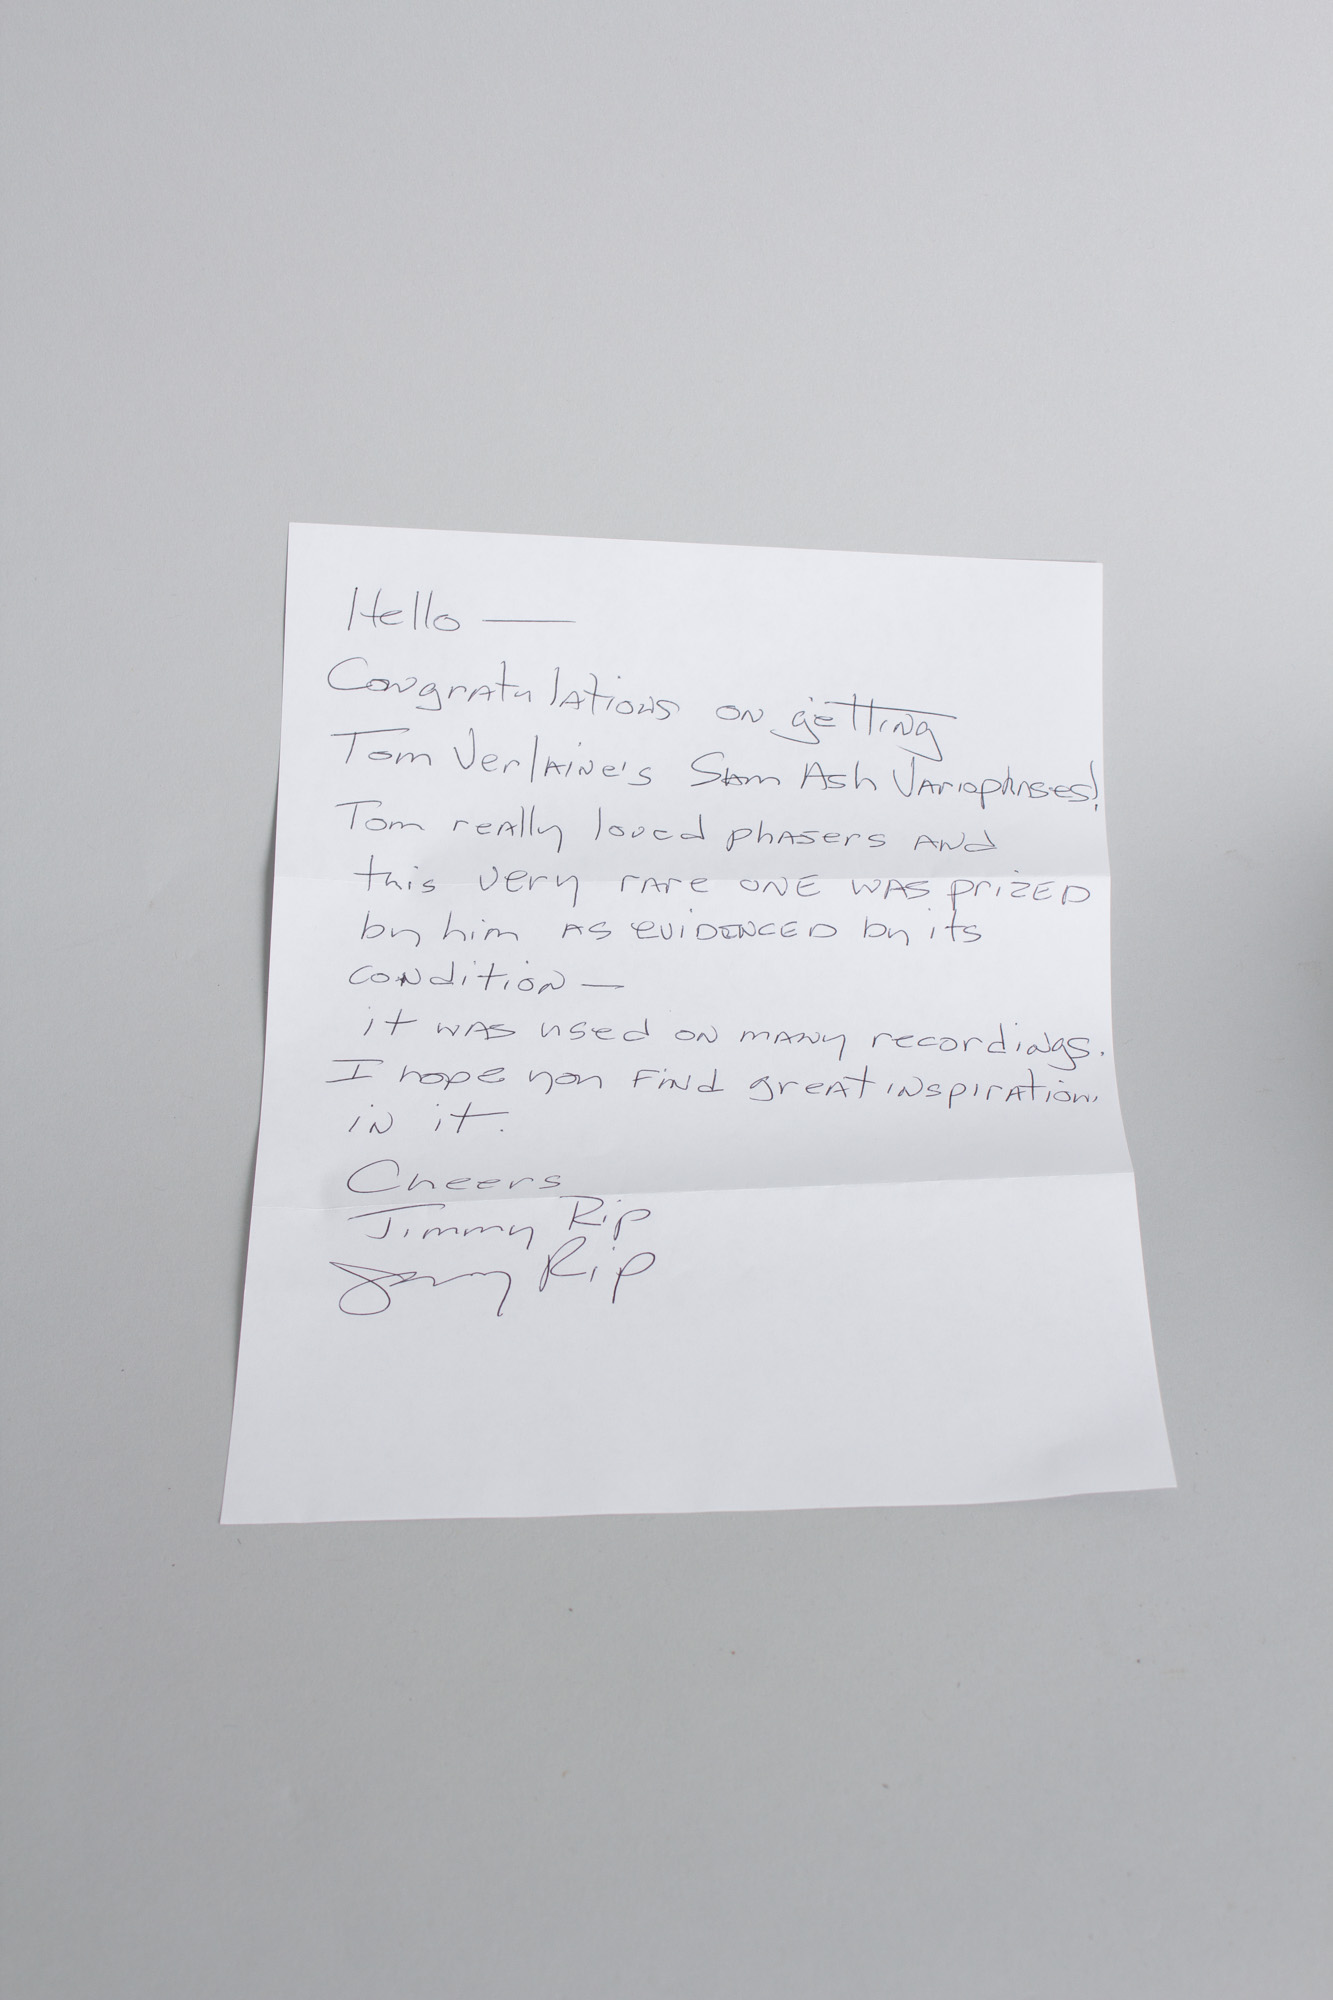 Hello —
Congratulations on getting
Tom Verlaine's Sam Ash Variaphases!
Tom really loved phasers and
this very rare one was prized
by him as evidenced by its
condition —
it was used on many recordings.
I hope you find great inspiration
in it.
Cheers
Jimmy Rip
Jimmy Rip